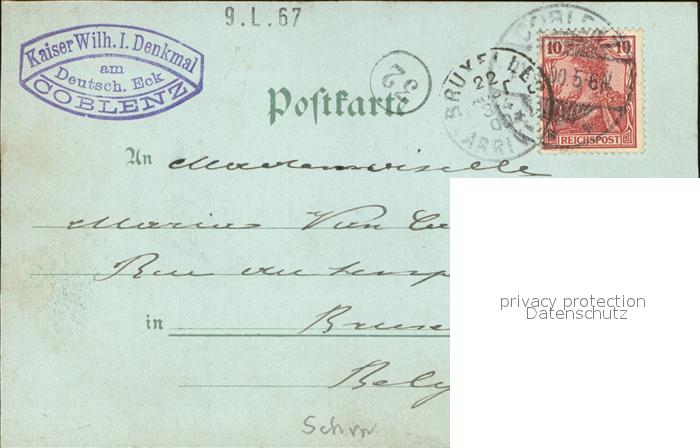 9.L.67
Kaiser Wilh. I. Denkmal
am
Deutsch. Eck
COBLENZ
32
BRUXELLES
22
ARRI
COBLEN
5-6N
10 10
REICHSPOST
Postkarte
An Mademoiselle
Marie Van
Rue du temp
in Brux
Belg
privacy protection
Datenschutz